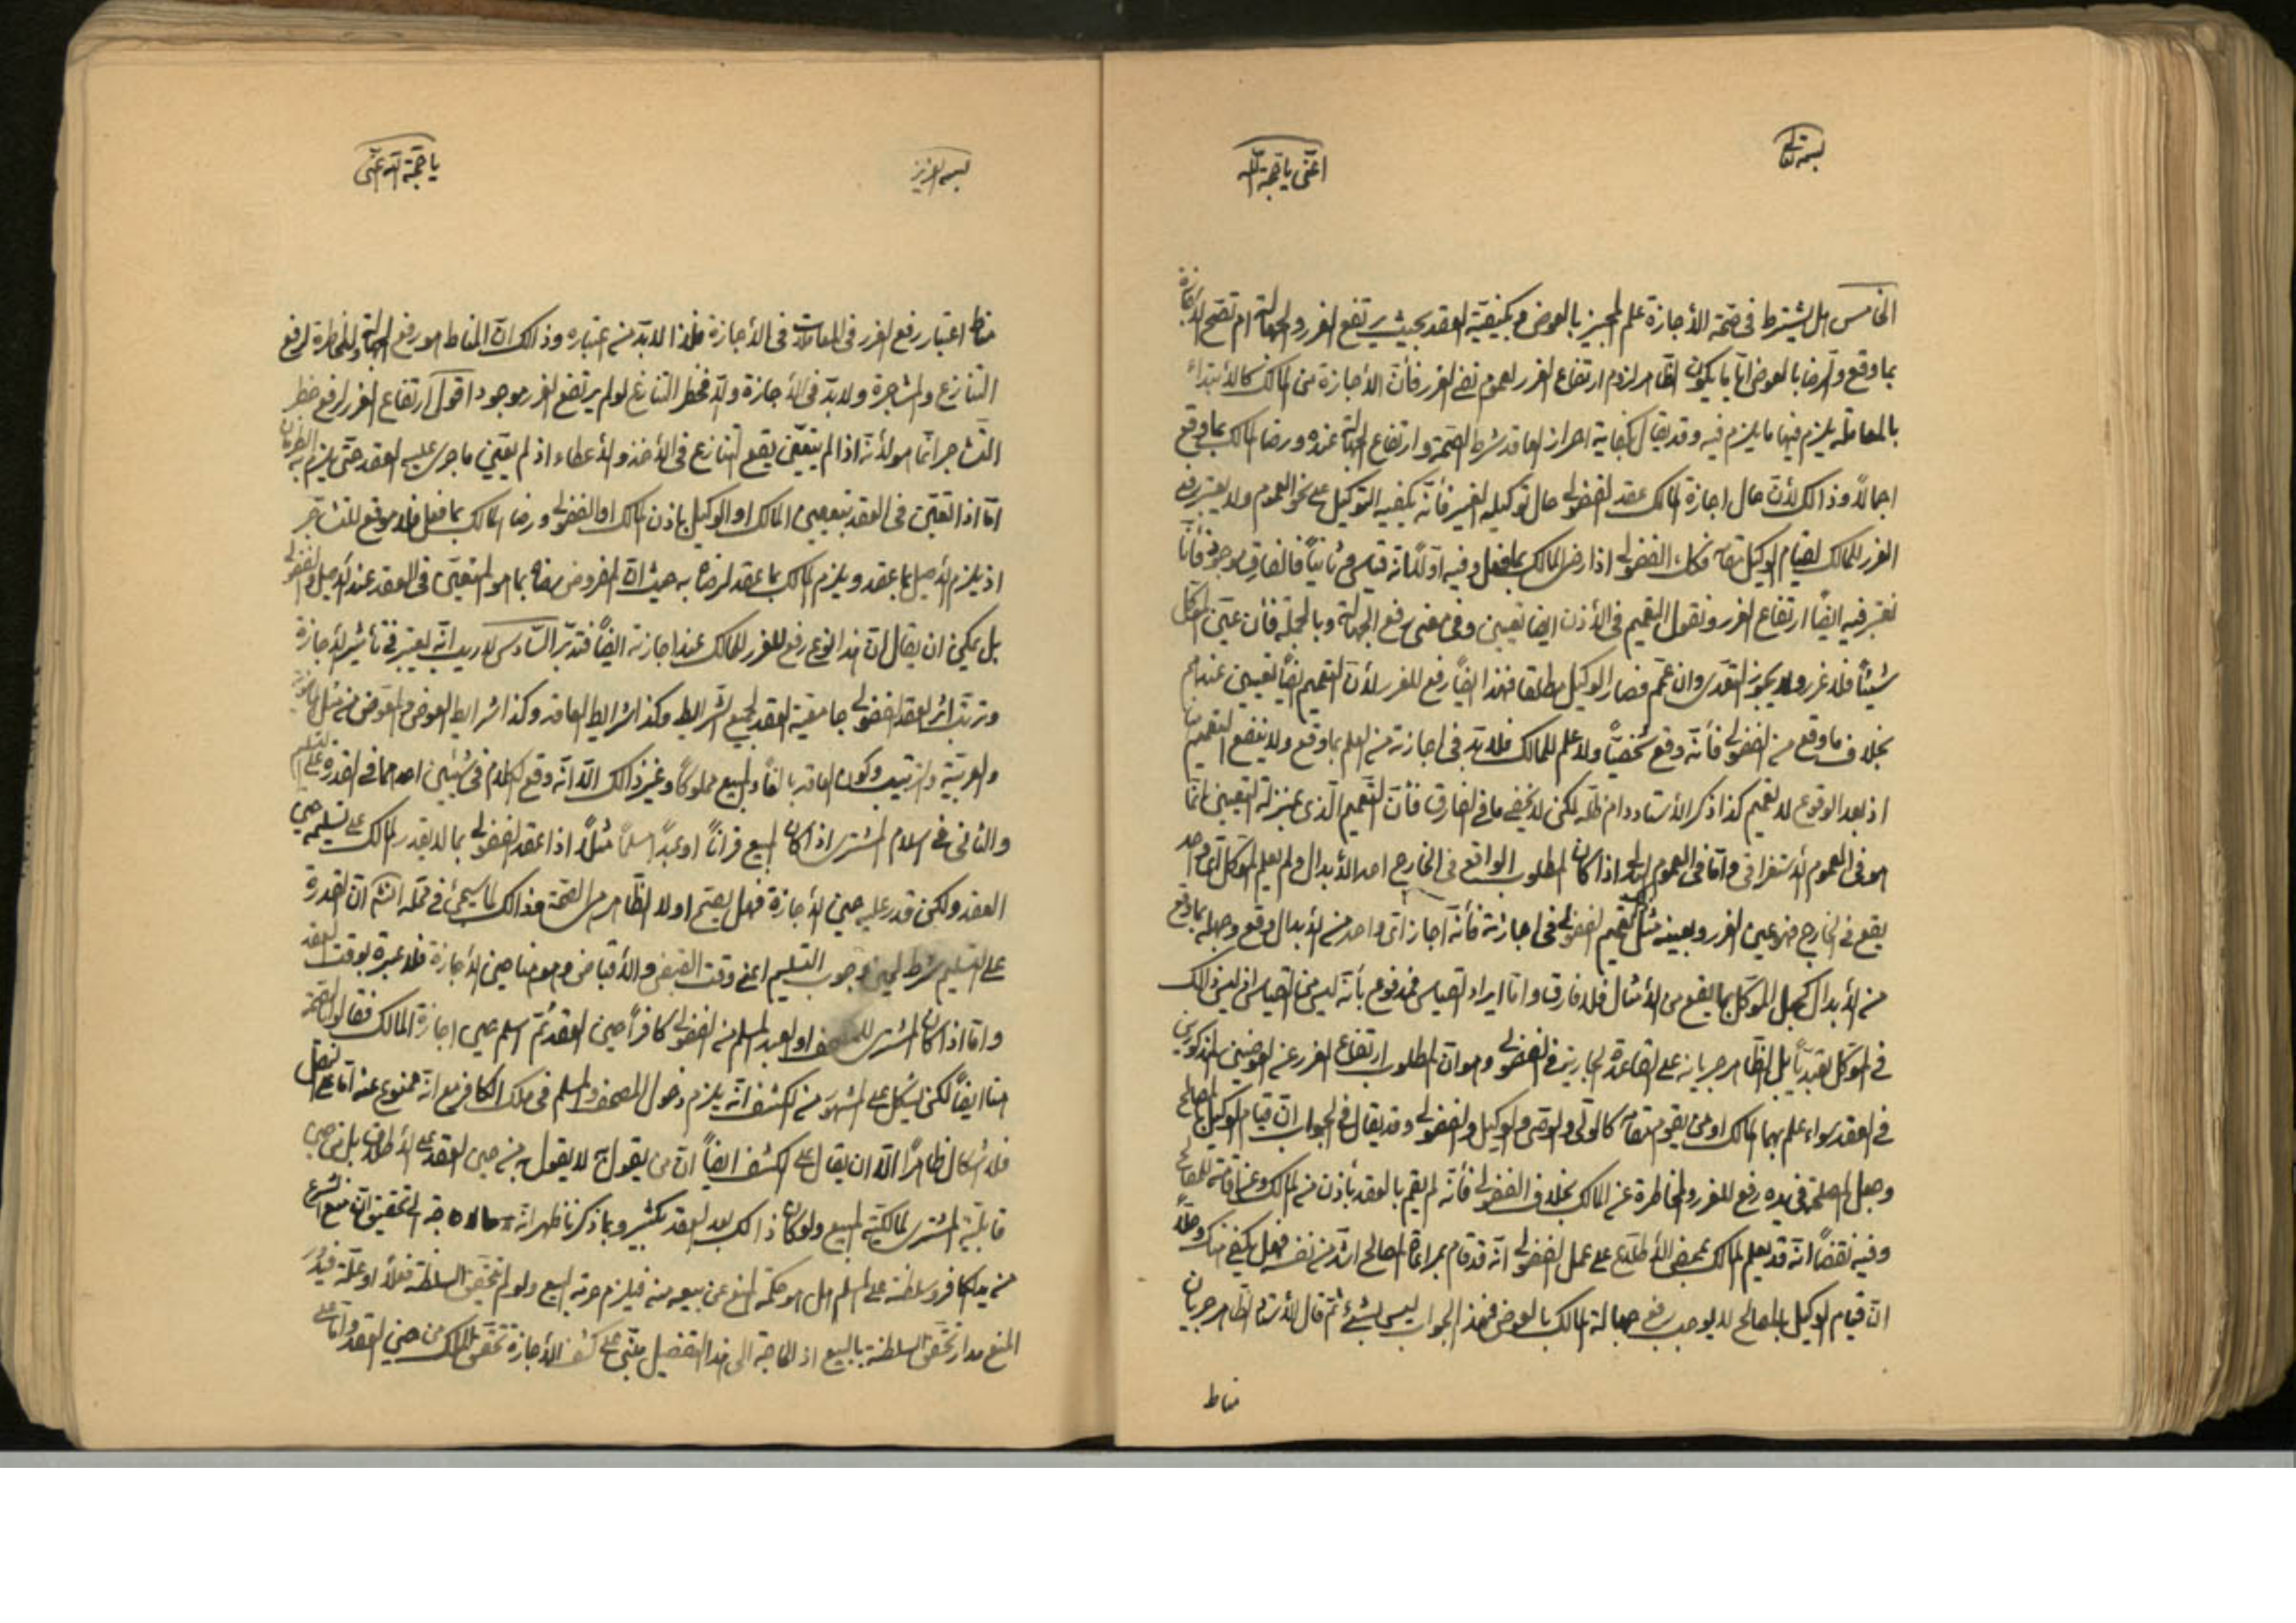 بسمه تعالى
اغثنى يا حجة الله
الخامس هل يشترط فى صحة الأجازة علم المجيز بالعوض و بكيفية العقد بحيث يرتفع الغرر والجهالة ام تصح الأجازة
بما وقع والرضا بالعوض اياً ما يكون الظاهر لزوم ارتفاع الغرر لعموم نفى الغرر فأن الأجازة من المالك كالأبتداء
بالمعاملة يلزم فيها ما يلزم فيه وقد يقال بكفاية احراز العاقد شرط الصحة وارتفاع الجهالة عنده ورضا المالك بما وقع
اجمالاً وذالك لأن حال اجازة المالك عقد الفضولى حال توكيله الغير فأنه يكفيه التوكيل على نحو العموم ولا يعتبر رفع
الغرر للمالك لقيام الوكيل مقامه فكك الفضولى اذا رضى المالك بما فعل وفيه اولاً انه قياس و ثانياً فالفارق موجود فأنا
نعتبر فيه ايضاً ارتفاع الغرر ونقول التعميم فى الأذن ايضا تعيين وفى معنى رفع الجهالة وبالجملة فأن عين الموكل
شيئاً فلا غرر ولا يجوز التعدى وان عمم فصار الوكيل مطلقا فهذا ايضاً رفع للغرر لأن التعميم ايضاً تعيين عندهم
بخلاف ما وقع من الفضولى فأنه وقع شخصياً ولا علم للمالك فلا بد فى اجازته من العلم بما وقع ولا ينفع التعميم
اذ بعد الوقوع لا تعميم كذا ذكر الأستاد دام ظله لكن لا يخفى ما فى الفارق فأن التعميم الذى بمنزلة التعيين انما
هو فى العموم الأستغراقى واما فى العموم البدلى اذا كان المطلوب الواقع فى الخارج احد الأبدال ولم يعلم الموكل اى واحد
يقع فى الخارج فهو عين الغرر وبعينه مثل تعميم الفضولى فى اجازته فأنه اجاز اى واحد من الأبدال وقع وجهله بما وقع
من الأبدال كجهل الموكل بما يقع من الأمثال فلا فارق واما ايراد القياس فمدفوع بأنه ليس من القياس اذ ليس ذالك
فى الموكل تعبدياً بل الظاهر جريانه على القاعدة الجارية فى الفضولى وهو ان المطلوب ارتفاع الغرر عن العوضين المذكورين
فى العقد سواء علم بهما المالك او من يقوم مقامه كالولى والوصى والوكيل والفضولى وقد يقال فى الجواب ان قيام الوكيل بالمصالح
وجعل المصلحة فى يده رفع للغرر والمخاطرة عن المالك بخلاف الفضولى فأنه لم يقم بالعقد بأذن من المالك
وفيه نقضاً انه قد يعلم المالك بمحض الأطلاع على عمل الفضولى انه قد قام بمراعاة المصالح اشد من نفسه فهل يكفى هناك وحلاً
ان قيام الوكيل بالمصالح لا يوجب رفع جهالة المالك بالعوض فهذا الجواب ليس بشئ ثم قال الأستاد الظاهر جريان
مناط
بسمه العزيز
يا حجة الله اغثنى
مناط اعتبار رفع الغرر فى المعاملات فى الأجازة فلذا لا بد من اعتباره وذالك ان المناط هو رفع الجهالة والمخاطرة لرفع
التنازع والمشاجرة ولا بد فى الأجازة والا فخطر التنازع لو لم يرتفع الغرر موجود اقول ارتفاع الغرر لرفع خطر
التشاجر انما هو لأنه اذا لم يتعين يقع التنازع فى الأخذ والأعطاء اذ لم يعين ما جرى عليه العقد حتى يلزم به الطرفان
اما اذا تعين فى العقد بتعيين المالك او الوكيل بأذن المالك او الفضولى ورضا المالك بما فعل فلا موقع للتشاجر
اذ يلزم الأصيل بما عقد ويلزم المالك بما عقد لرضاه به حيث ان المفروض رضاه بما هو المتعين فى العقد عند الأصيل والفضولى
بل يمكن ان يقال ان هذا النوع رفع للغرر للمالك عند اجازته ايضاً فتدبر السادس لا ريب انه يعتبر فى تأثير الأجازة
وترتب اثر العقد الفضولى جامعية العقد لجميع الشرايط وكذا شرايط العاقد وكذا شرايط العوض والمعوض من مثل الماضوية
والعربية والترتيب وكون العاقد بالغاً والمبيع مملوكاً وغير ذالك الا انه وقع الكلام فى شيئين احدهما فى القدرة على التسليم
والثانى فى اسلام المشترى اذا كان المبيع قراناً او عبداً مسلماً مثلاً اذا عقد الفضولى بما لا يقدر المالك على تسليمه حين
العقد ولكن قدر عليه حين الأجازة فهل يصح او لا الظاهر هى الصحة فذالك لما سيجئ فى محله انشاء الله ان القدرة
على التسليم شرط لحين وجوب التسليم اعنى وقت القبض والأقباض وهو هنا حين الأجازة فلا عبرة بوقت العقد
واما اذا كان المشترى للمصحف او العبد المسلم من الفضولى كافراً حين العقد ثم اسلم حين اجازة المالك فقالوا بالصحة
هنا ايضاً لكن يشكل على المشهور من الكشف انه يلزم دخول المصحف والمسلم فى ملك الكافر مع انه ممنوع عنه اما على النقل
فلا اشكال ظاهراً الا ان يقال على الكشف ايضاً ان من يقول به لا يقول به من حين العقد على الأطلاق بل من حين
قابلية المشترى لمالكية المبيع ولو كان ذالك بعد العقد بكثير وبما ذكرنا ظهر انه
من يد الكافر وسلطنته على المسلم هل هو حكمة المنع عن بيعه منه فيلزم حرمة البيع ولو لم يتحقق السلطنة فعلاً او علة فيدور
المنع مدار تحقق السلطنة بالبيع اذ الحاجة الى هذا التفصيل مبنى على كشف الأجازة تحقق الملك من حين العقد واما على